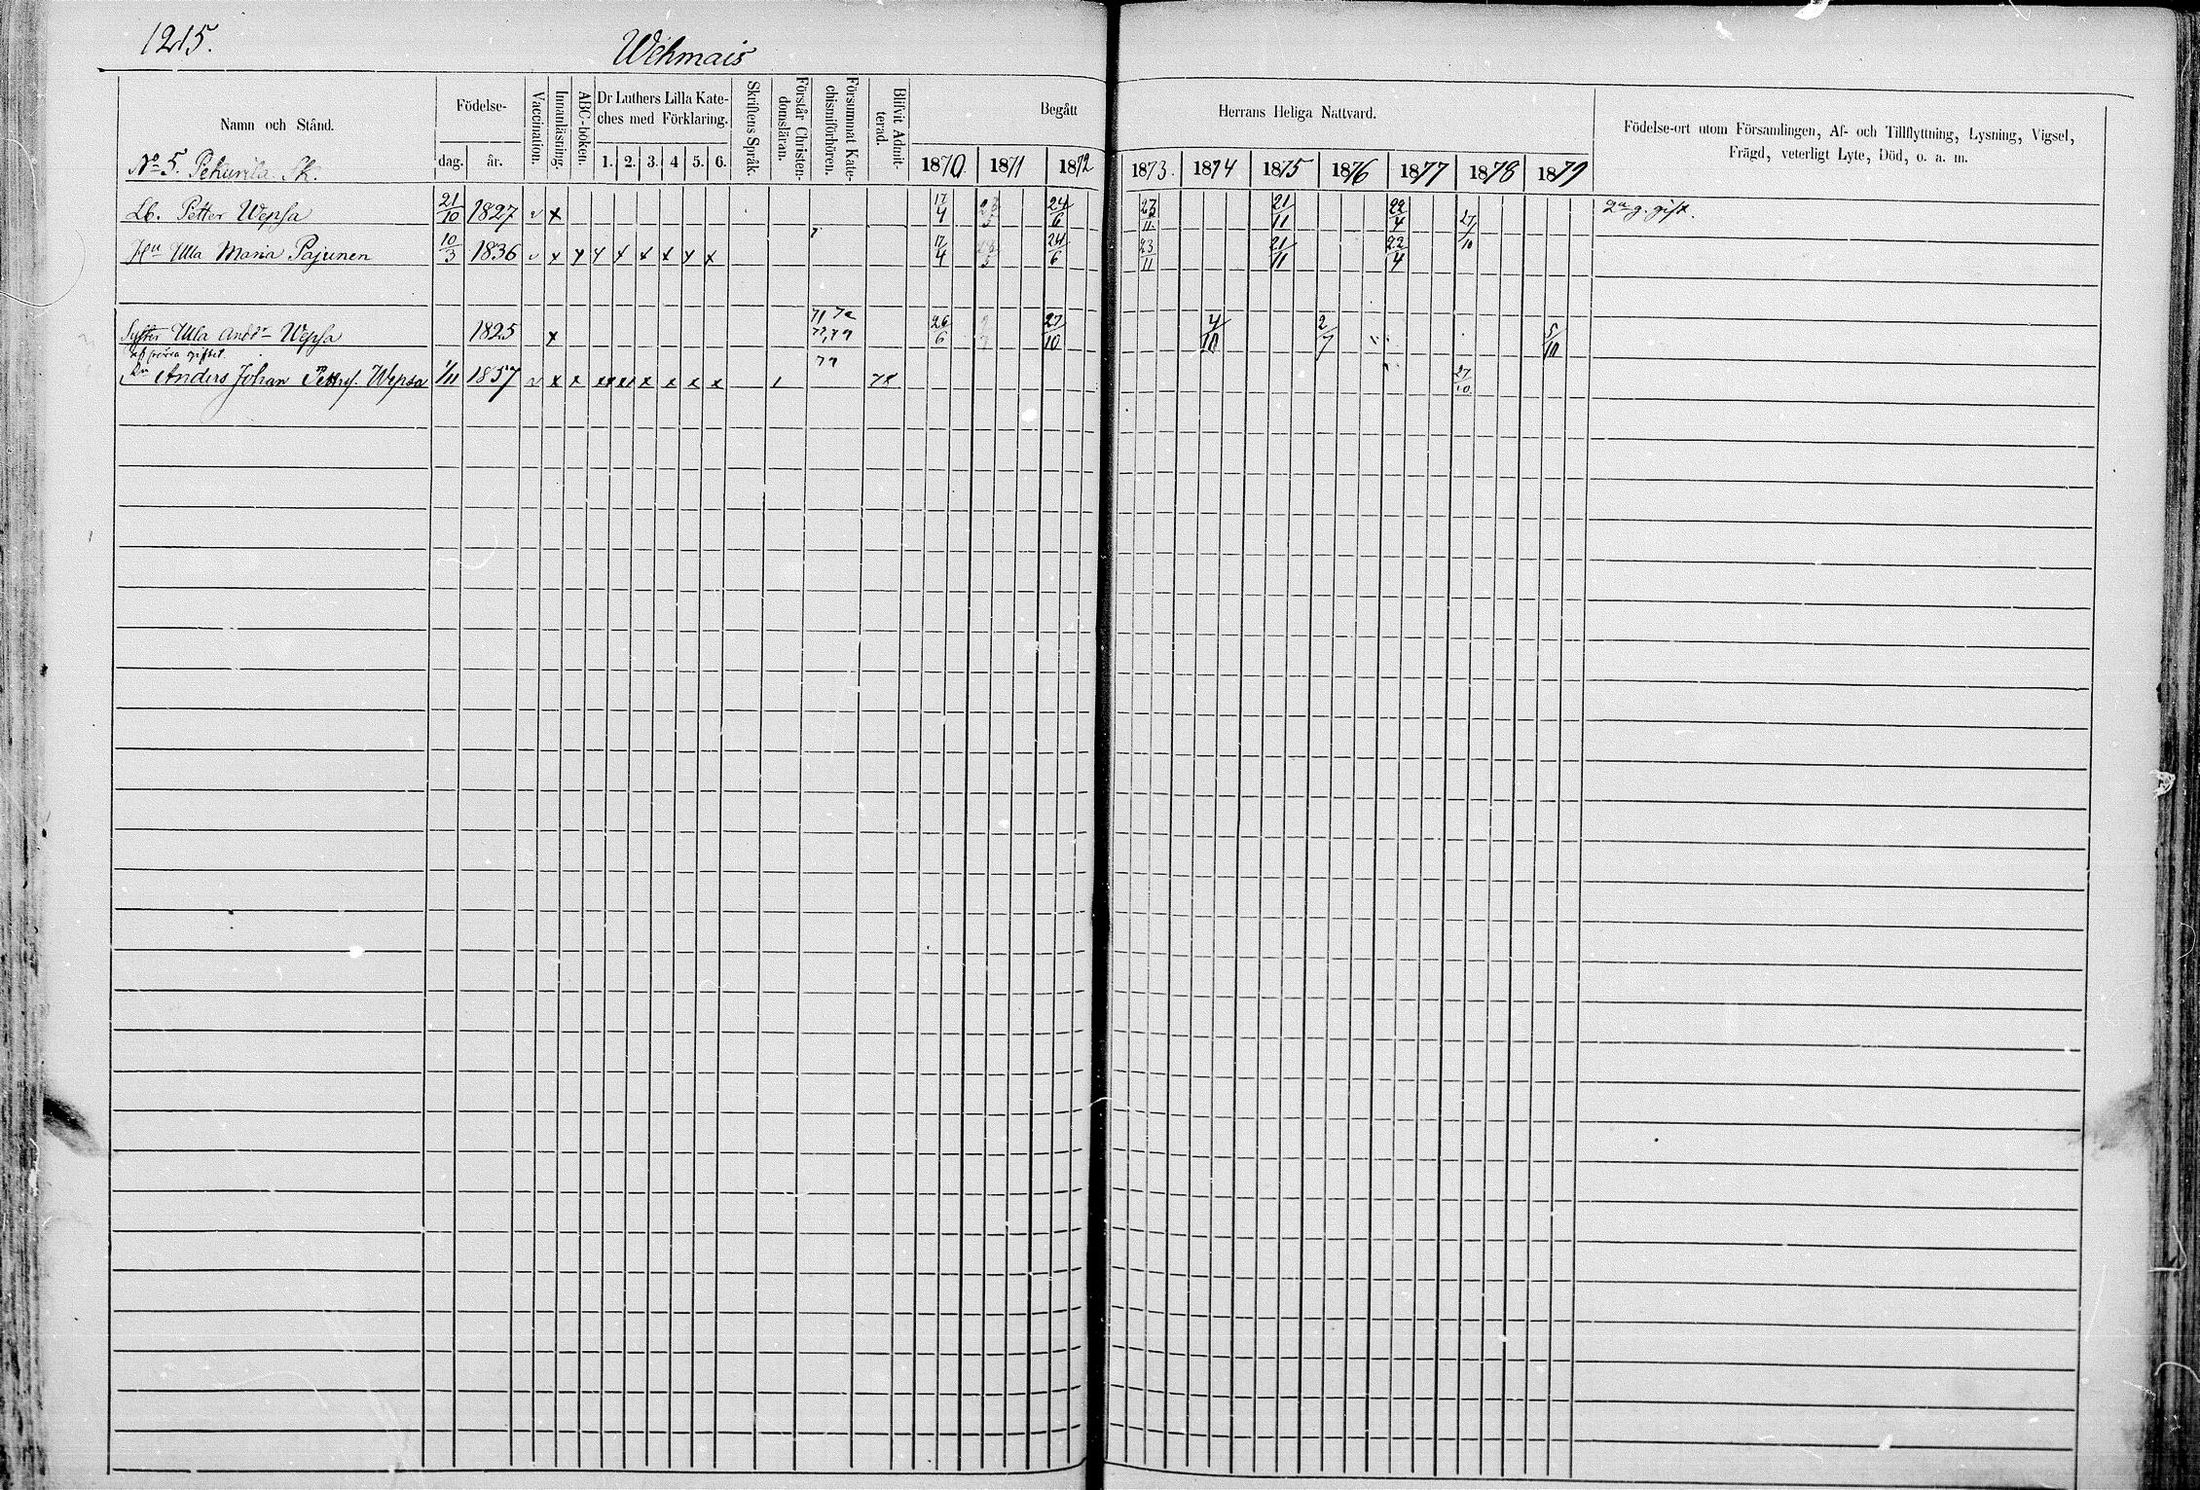 1215.
Wehmais
Namn och Stånd.
Födelse-
dag. år.
Vaccination.
Innanläsning.
ABC-boken.
Dr Luthers Lilla Kate-
ches med Förklaring.
1. 2. 3. 4 5. 6.
Skriftens Språk.
Förstår Christen-
domsläran.
Försummat Kate-
chismiförhören.
Blifvit Admit-
terad.
Begått Herrans Heliga Nattvard.
1870 1871 1872 1873. 1874 1875 1876 1877 1878 1879
Födelse-ort utom Församlingen, Af- och Tillflyttning, Lysning, Vigsel,
Frägd, veterligt Lyte, Död, o. a. m.
No 5. Sk.
Lb. Petter Wepsa 21/10 1827 v x 17/4 24/6 23/11 21/11 22/4 27/10 2a g. gift.
Hu Ulla Maria Pajunen 10/3 1836 v x x x x x x x x 17/4 24/6 23/11 21/11 22/4
Syster Ulla Andr Wepsa 1825 x 26/6 27/10 4/10 2/7 5/10
af förra giftet
Anders Johan Pettrs. Wepsa 1/11 1857 v x x x x x x x x 27/10